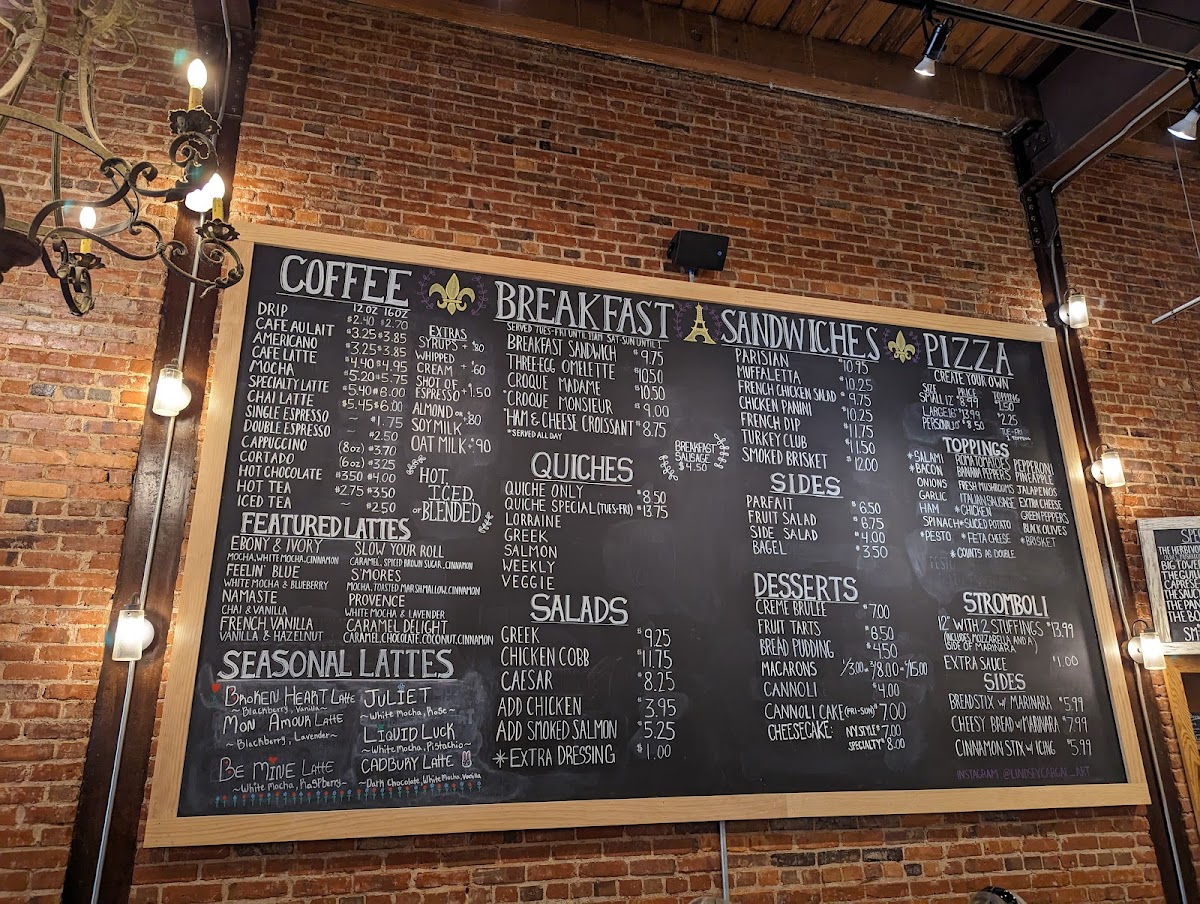 COFFEE
12oz 16oz
DRIP $2.40 $2.70
CAFE AU LAIT $3.25 $3.85
AMERICANO $3.25 $3.85
CAFE LATTE $4.40 $4.95
MOCHA $5.20 $5.75
SPECIALTY LATTE $5.40 $6.00
CHAI LATTE $5.45 $6.00
SINGLE ESPRESSO ~ $1.75
DOUBLE ESPRESSO ~ $2.50
CAPPUCCINO (8oz) $3.70
CORTADO (6oz) $3.25
HOT CHOCOLATE $3.50 $4.00
HOT TEA $2.75 $3.50
ICED TEA ~ $2.50
EXTRAS
SYRUPS + $.80
WHIPPED
CREAM + $.60
SHOT OF
ESPRESSO + $1.50
ALMOND OR
SOY MILK $.80
OAT MILK + $.90
HOT,
ICED,
OR BLENDED
FEATURED LATTES
EBONY & IVORY
MOCHA, WHITE MOCHA, CINNAMON
FEELIN' BLUE
WHITE MOCHA & BLUEBERRY
NAMASTE
CHAI & VANILLA
FRENCH VANILLA
VANILLA & HAZELNUT
SLOW YOUR ROLL
CARAMEL, SPICED BROWN SUGAR, CINNAMON
S'MORES
MOCHA, TOASTED MARSHMALLOW, CINNAMON
PROVENCE
WHITE MOCHA & LAVENDER
CARAMEL DELIGHT
CARAMEL, CHOCOLATE, COCONUT, CINNAMON
SEASONAL LATTES
BROKEN HEART LATTE
~Blackberry, Vanilla~
MON AMOUR LATTE
~Blackberry, Lavender~
BE MINE LATTE
~White Mocha, Raspberry~
JULIET
~White Mocha, Rose~
LIQUID LUCK
~White Mocha, Pistachio~
CADBURY LATTE
~Dark Chocolate, White Mocha, Vanilla
BREAKFAST
SERVED TUES-FRI UNTIL 11AM SAT-SUN UNTIL 1
BREAKFAST SANDWICH $9.75
THREE-EGG OMELETTE $10.50
CROQUE MADAME $10.50
*CROQUE MONSIEUR $9.00
*HAM & CHEESE CROISSANT $8.75
*SERVED ALL DAY
BREAKFAST
SAUSAGE
$4.50
QUICHES
QUICHE ONLY $8.50
QUICHE SPECIAL (TUES-FRI) $13.75
LORRAINE
GREEK
SALMON
WEEKLY
VEGGIE
SALADS
GREEK $9.25
CHICKEN COBB $11.75
CAESAR $8.25
ADD CHICKEN $3.95
ADD SMOKED SALMON $5.25
*EXTRA DRESSING $1.00
SANDWICHES
PARISIAN $10.95
MUFFALETTA $10.25
FRENCH CHICKEN SALAD $9.75
CHICKEN PANINI $10.25
FRENCH DIP $11.75
TURKEY CLUB $11.50
SMOKED BRISKET $12.00
SIDES
PARFAIT $6.50
FRUIT SALAD $6.75
SIDE SALAD $4.00
BAGEL $3.50
DESSERTS
CREME BRULEE $7.00
FRUIT TARTS $6.50
BREAD PUDDING $4.50
MACARONS 1/3.00 - 3/8.00 - 6/15.00
CANNOLI $4.00
CANNOLI CAKE (FRI-SUN) $7.00
CHEESECAKE: NY STYLE $7.00
SPECIALTY $8.00
PIZZA
CREATE YOUR OWN
SIZE PRICE TOPPING
SMALL 12" $8.99 1.50
LARGE 16" $13.99 2.25
PERSONAL 10" $8.50 TUE-FRI
1 TOPPING
TOPPINGS
*SALAMI
*BACON
ONIONS
GARLIC
HAM
SPINACH
*PESTO
ROMA TOMATOES
BANANA PEPPERS
FRESH MUSHROOMS
ITALIAN SAUSAGE
*CHICKEN
*SLICED POTATO
*FETA CHEESE
PEPPERONI
PINEAPPLE
JALAPENOS
EXTRA CHEESE
GREEN PEPPERS
BLACK OLIVES
*BRISKET
*COUNTS AS DOUBLE
STROMBOLI
12" WITH 2 STUFFINGS $13.99
(INCLUDES MOZZARELLA AND A
SIDE OF MARINARA)
EXTRA SAUCE $1.00
SIDES
BREADSTIX W/ MARINARA $5.99
CHEESY BREAD W/ MARINARA $7.99
CINNAMON STIX W/ ICING $5.99
INSTAGRAM @LINDSEYCARGAL_ART
SPE
THE HERBIVO
BIG TOWE
THE GU
CAPRESE
THE SAUC
THE PA
THE BA
SM